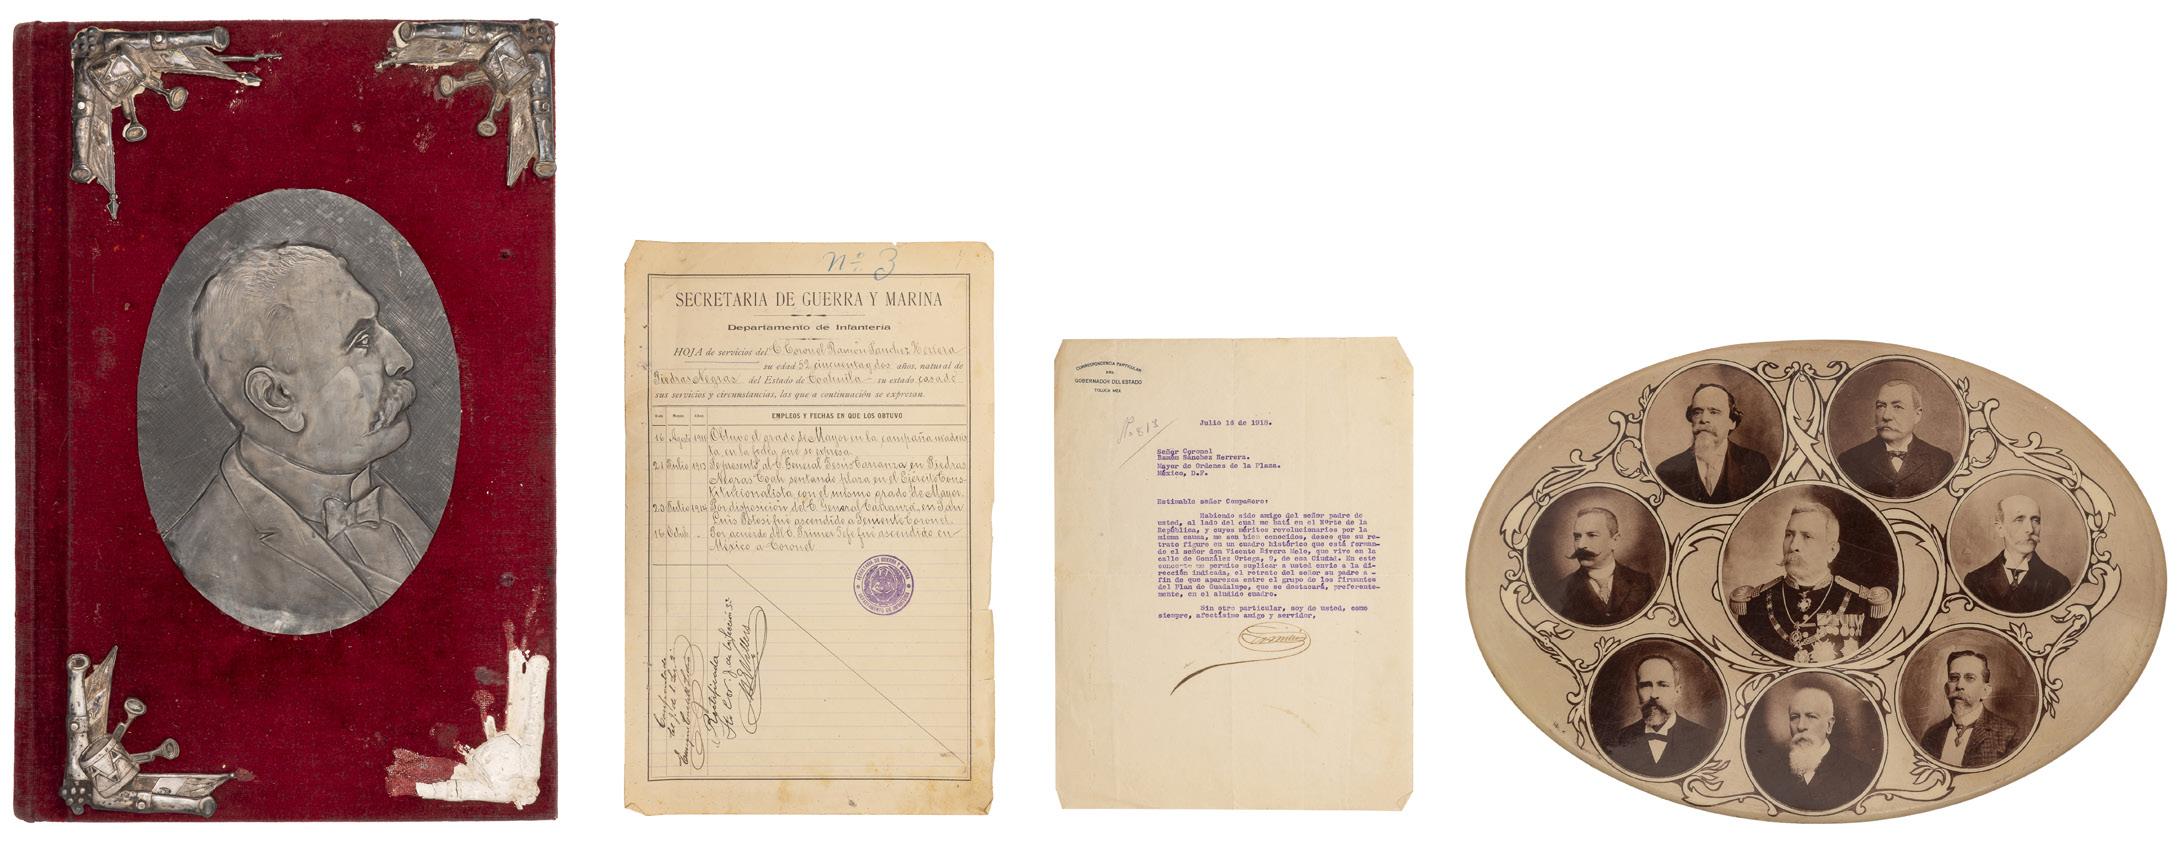 Nº 3
SECRETARIA DE GUERRA Y MARINA
Departamento de Infantería
HOJA de servicios del C. Coronel Ramón Sanchez Herrera
su edad 52 cincuenta y dos años, natural de
Piedras Negras del Estado de Coahuila su estado casado
sus servicios y circunstancias, las que a continuación se expresan.
EMPLEOS Y FECHAS EN QUE LOS OBTUVO
16 Agosto Obtuvo el grado de Mayor en la campaña
la en la fecha que se expresa
21 Julio 1913 Se presentó al C. General Jesús Carranza en Piedras
Negras Coah. sentando plaza en el Ejército Cons-
titucionalista con el mismo grado de Mayor.
23 Julio 1914 Por disposición del C. General Carranza, en San
Luis Potosí fue ascendido a Teniente Coronel.
16 Octub. Por acuerdo del C. Primer Jefe fue ascendido en
México a Coronel
SECRETARIA DE GUERRA Y MARINA
DEPARTAMENTO DE INFANTERIA
CORRESPONDENCIA PARTICULAR
DEL
GOBERNADOR DEL ESTADO
TOLUCA MEX.
Julio 16 de 1918.
Señor Coronel
Ramón Sánchez Herrera.
Mayor de Ordenes de la Plaza.
México, D.F.
Estimable señor Compañero:
Habiendo sido amigo del señor padre de
usted, al lado del cual me batí en el Norte de la
República, y cuyos méritos revolucionarios por la
misma causa, me son bien conocidos, deseo que su re-
trato figure en un cuadro histórico que está forman-
do el señor don Vicente Rivera Melo, que vive en la
calle de González Ortega, 9, de esa Ciudad. En este
concepto me permito suplicar a usted envíe a la di-
rección indicada, el retrato del señor su padre a -
fin de que aparezca entre el grupo de los firmantes
del Plan de Guadalupe, que se destacará, preferente-
mente, en el aludido cuadro.
Sin otro particular, soy de usted, como
siempre, afectísimo amigo y servidor,